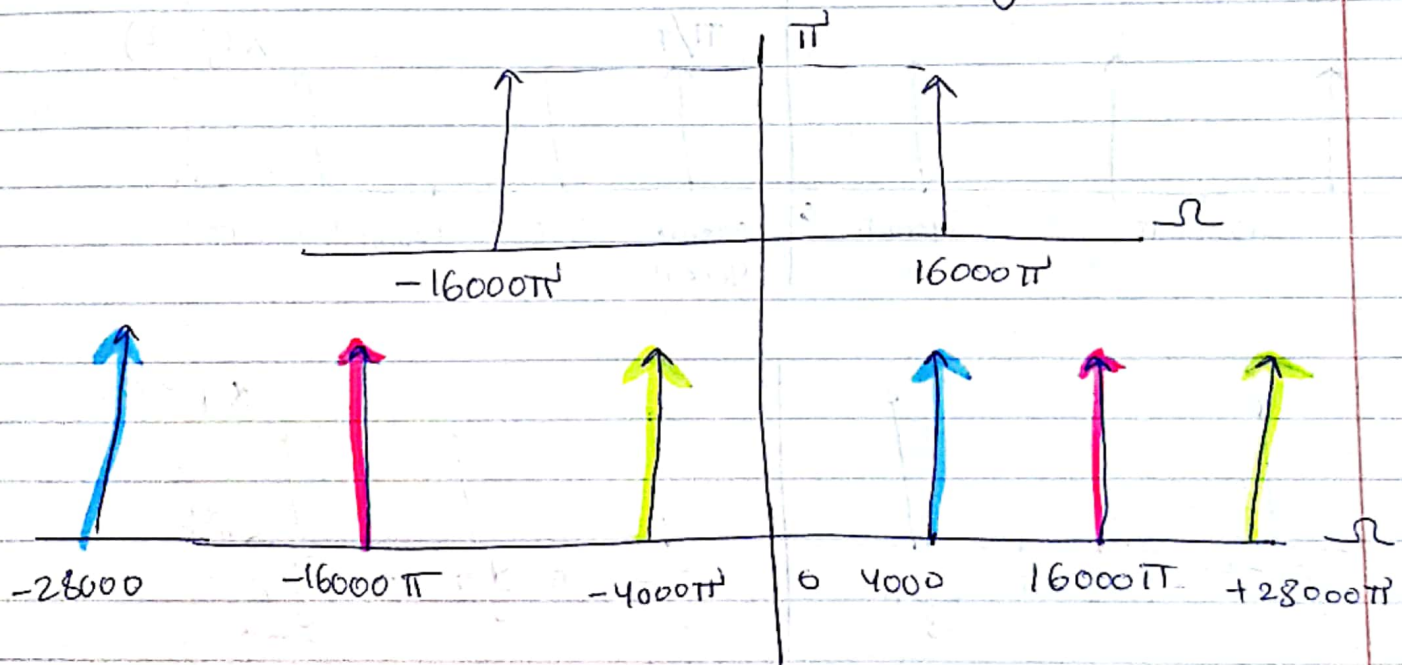 π
Ω
-16000π 16000π
Ω
-28000 -16000π -4000π 0 4000 16000π +28000π